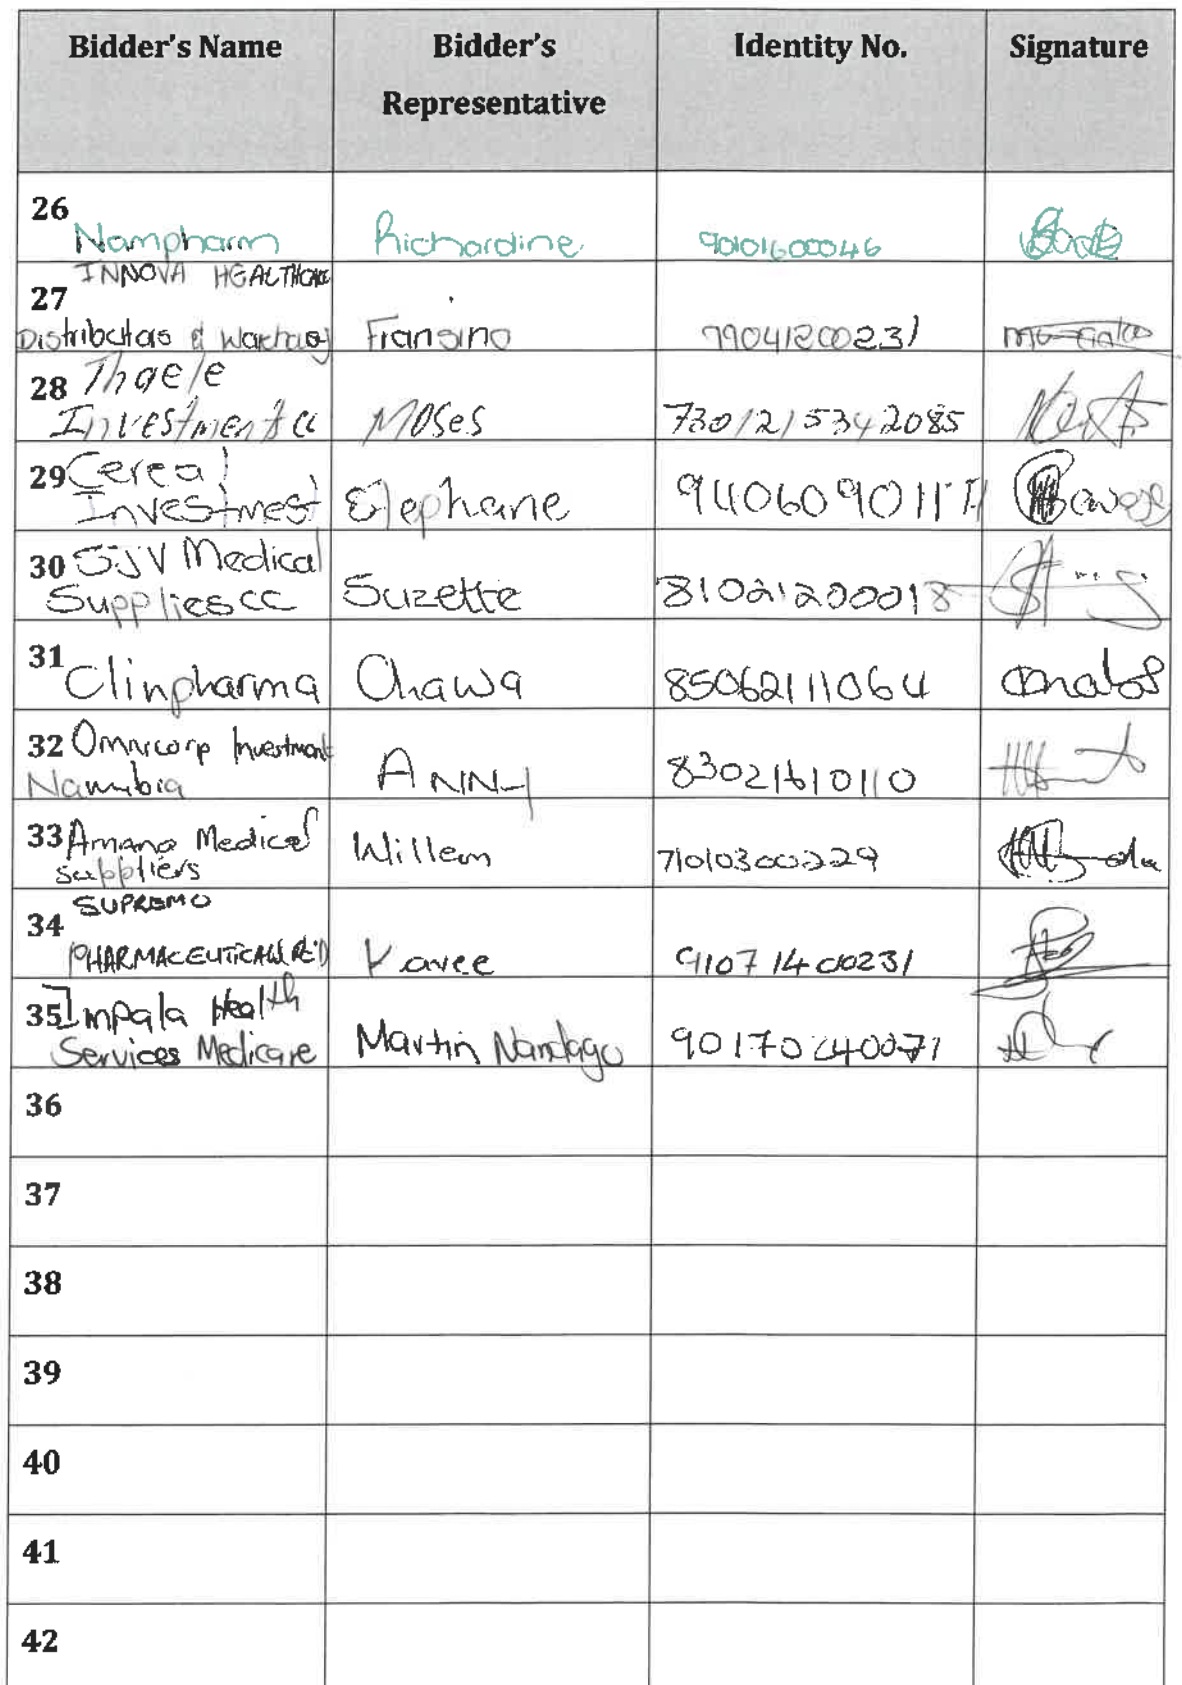 Bidder's Name Bidder's Representative Identity No. Signature
26 Nampharm Richardine 90101600046
27 INNOVA HEALTHCARE
Distributors & Fransina 79041200231
28 Thaele
Investment cc Moses 7301215342085
29 Cereal
Investmest
30 SJV Medical
Supplies CC Suzette 81021200018
31 Clinpharma Chawa 85062111064
32 Omnicorp Investment
Namibia ANNY 83021610110
33 Amano Medical
suppliers Willem 71010300229
34 SUPREMO
PHARMACEUTICALS 91071400231
35 Impala Health
Services Medicare Martin Nandago
36
37
38
39
40
41
42